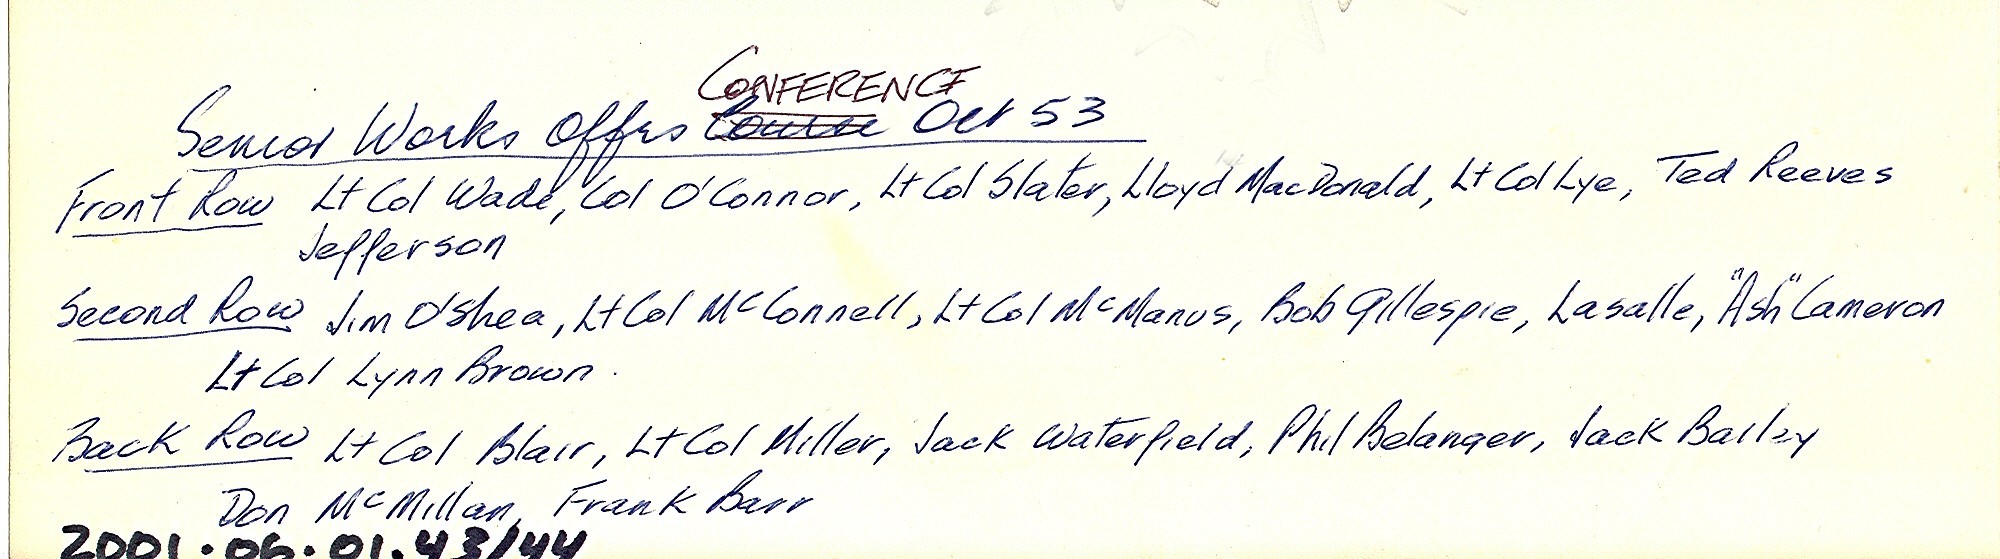 CONFERENCE
Senior Works Offrs Course Oct 53
Front Row Lt Col Wade, Col O'Connor, Lt Col Slater, Lloyd MacDonald, Lt Col Lye, Ted Reeves
Jefferson
Second Row Jim O'Shea, Lt Col McConnell, Lt Col McManus, Bob Gillespie, Lasalle, "Ash" Cameron
Lt Col Lynn Brown.
Back Row Lt Col Blair, Lt Col Miller, Jack Waterfield, Phil Belanger, Jack Bailey
Don McMillan, Frank Barr
2001.06.01.43/44